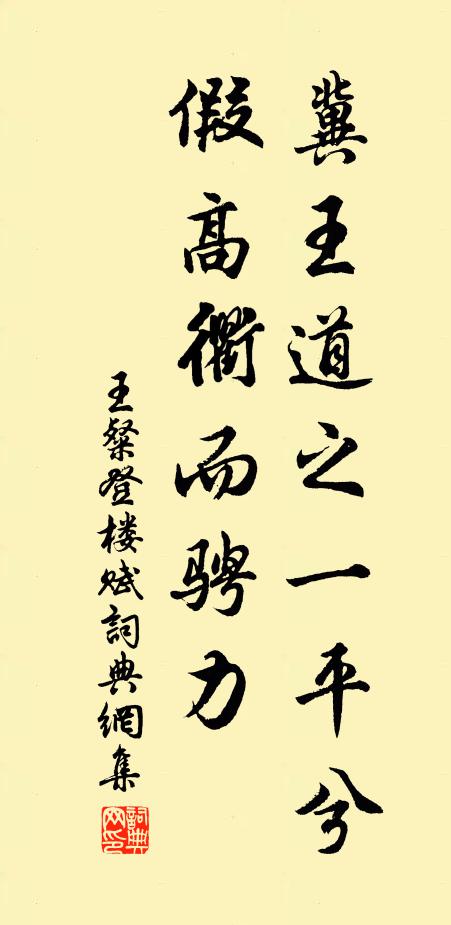 冀王道之一平兮
假高衢而骋力
王粲登楼赋词典網集
詞典网印